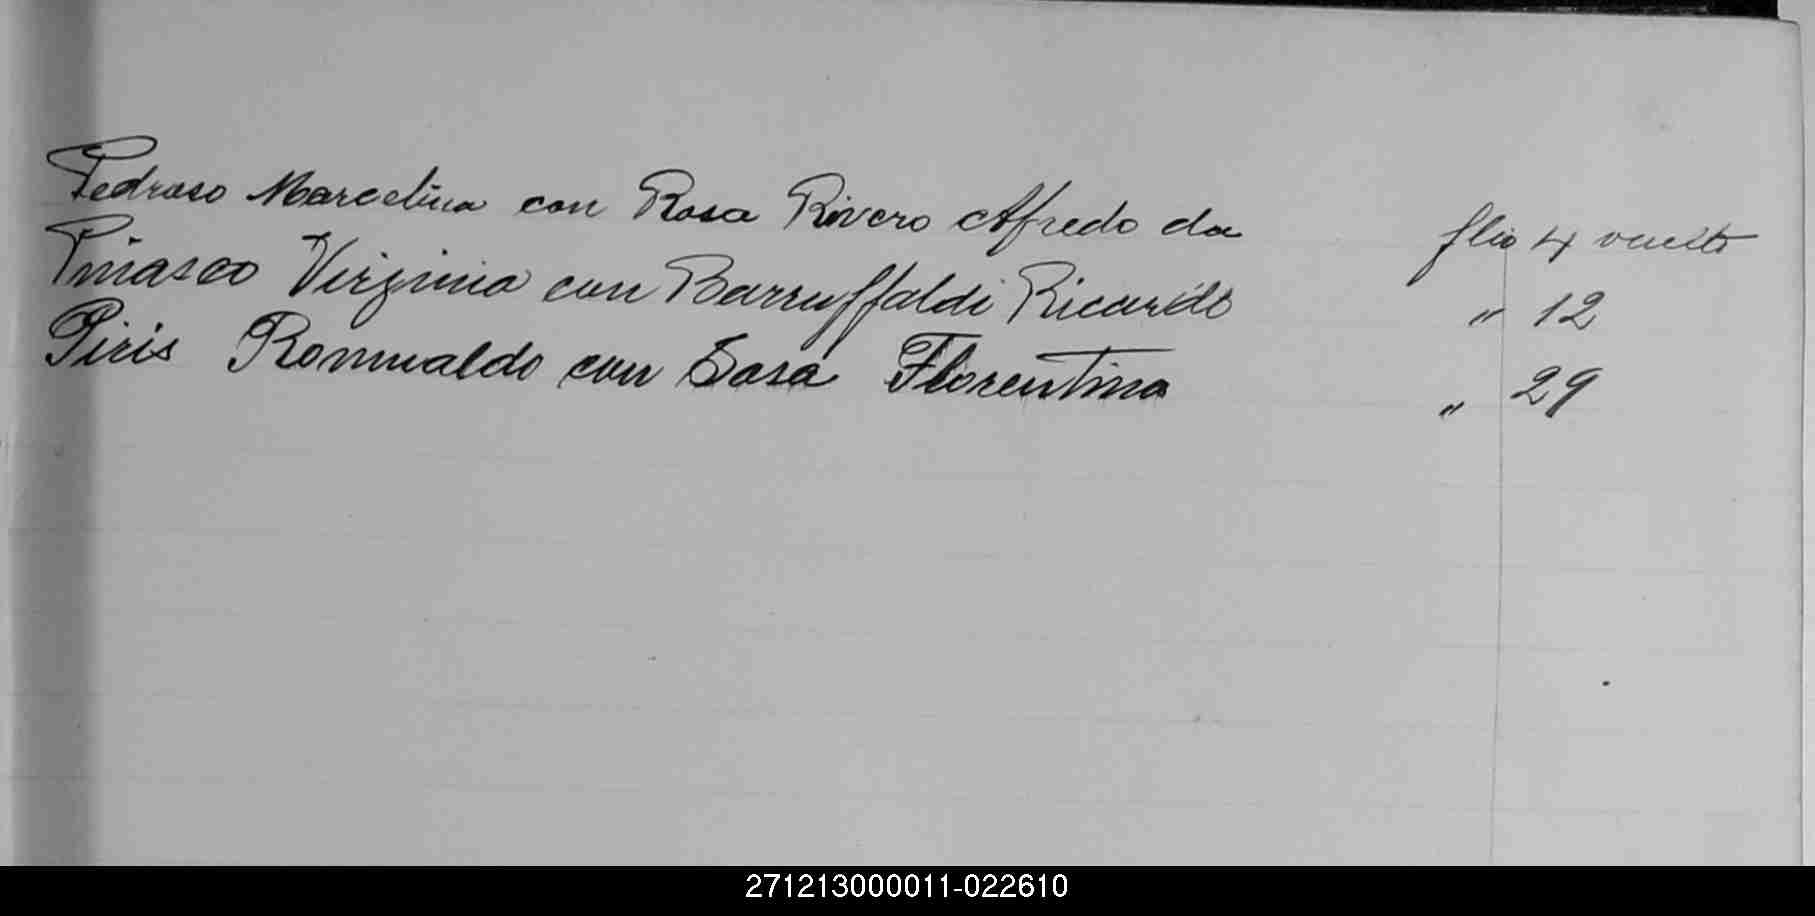 Pedroso Marcelina con Rosa Rivero Alfredo da flio 4 vuelto
Piñasco Virginia con Barruffaldi Ricardo " 12
Piris Romualdo con Sosa Florentina " 29
271213000011-022610